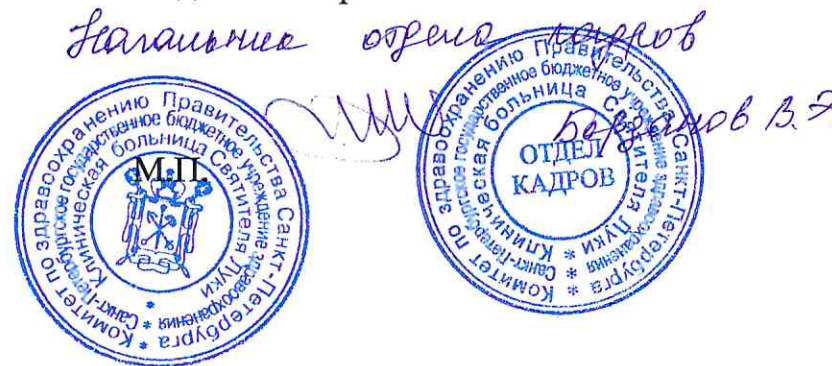 Начальник отдела кадров
Комитет по здравоохранению Правительства Санкт-Петербурга *
Санкт-Петербургское государственное бюджетное учреждение здравоохранения *
Клиническая больница Святителя Луки *
М.П.
Комитет по здравоохранению Правительства Санкт-Петербурга *
Санкт-Петербургское государственное бюджетное учреждение здравоохранения *
Клиническая больница Святителя Луки *
ОТДЕЛ
КАДРОВ
В.Э.